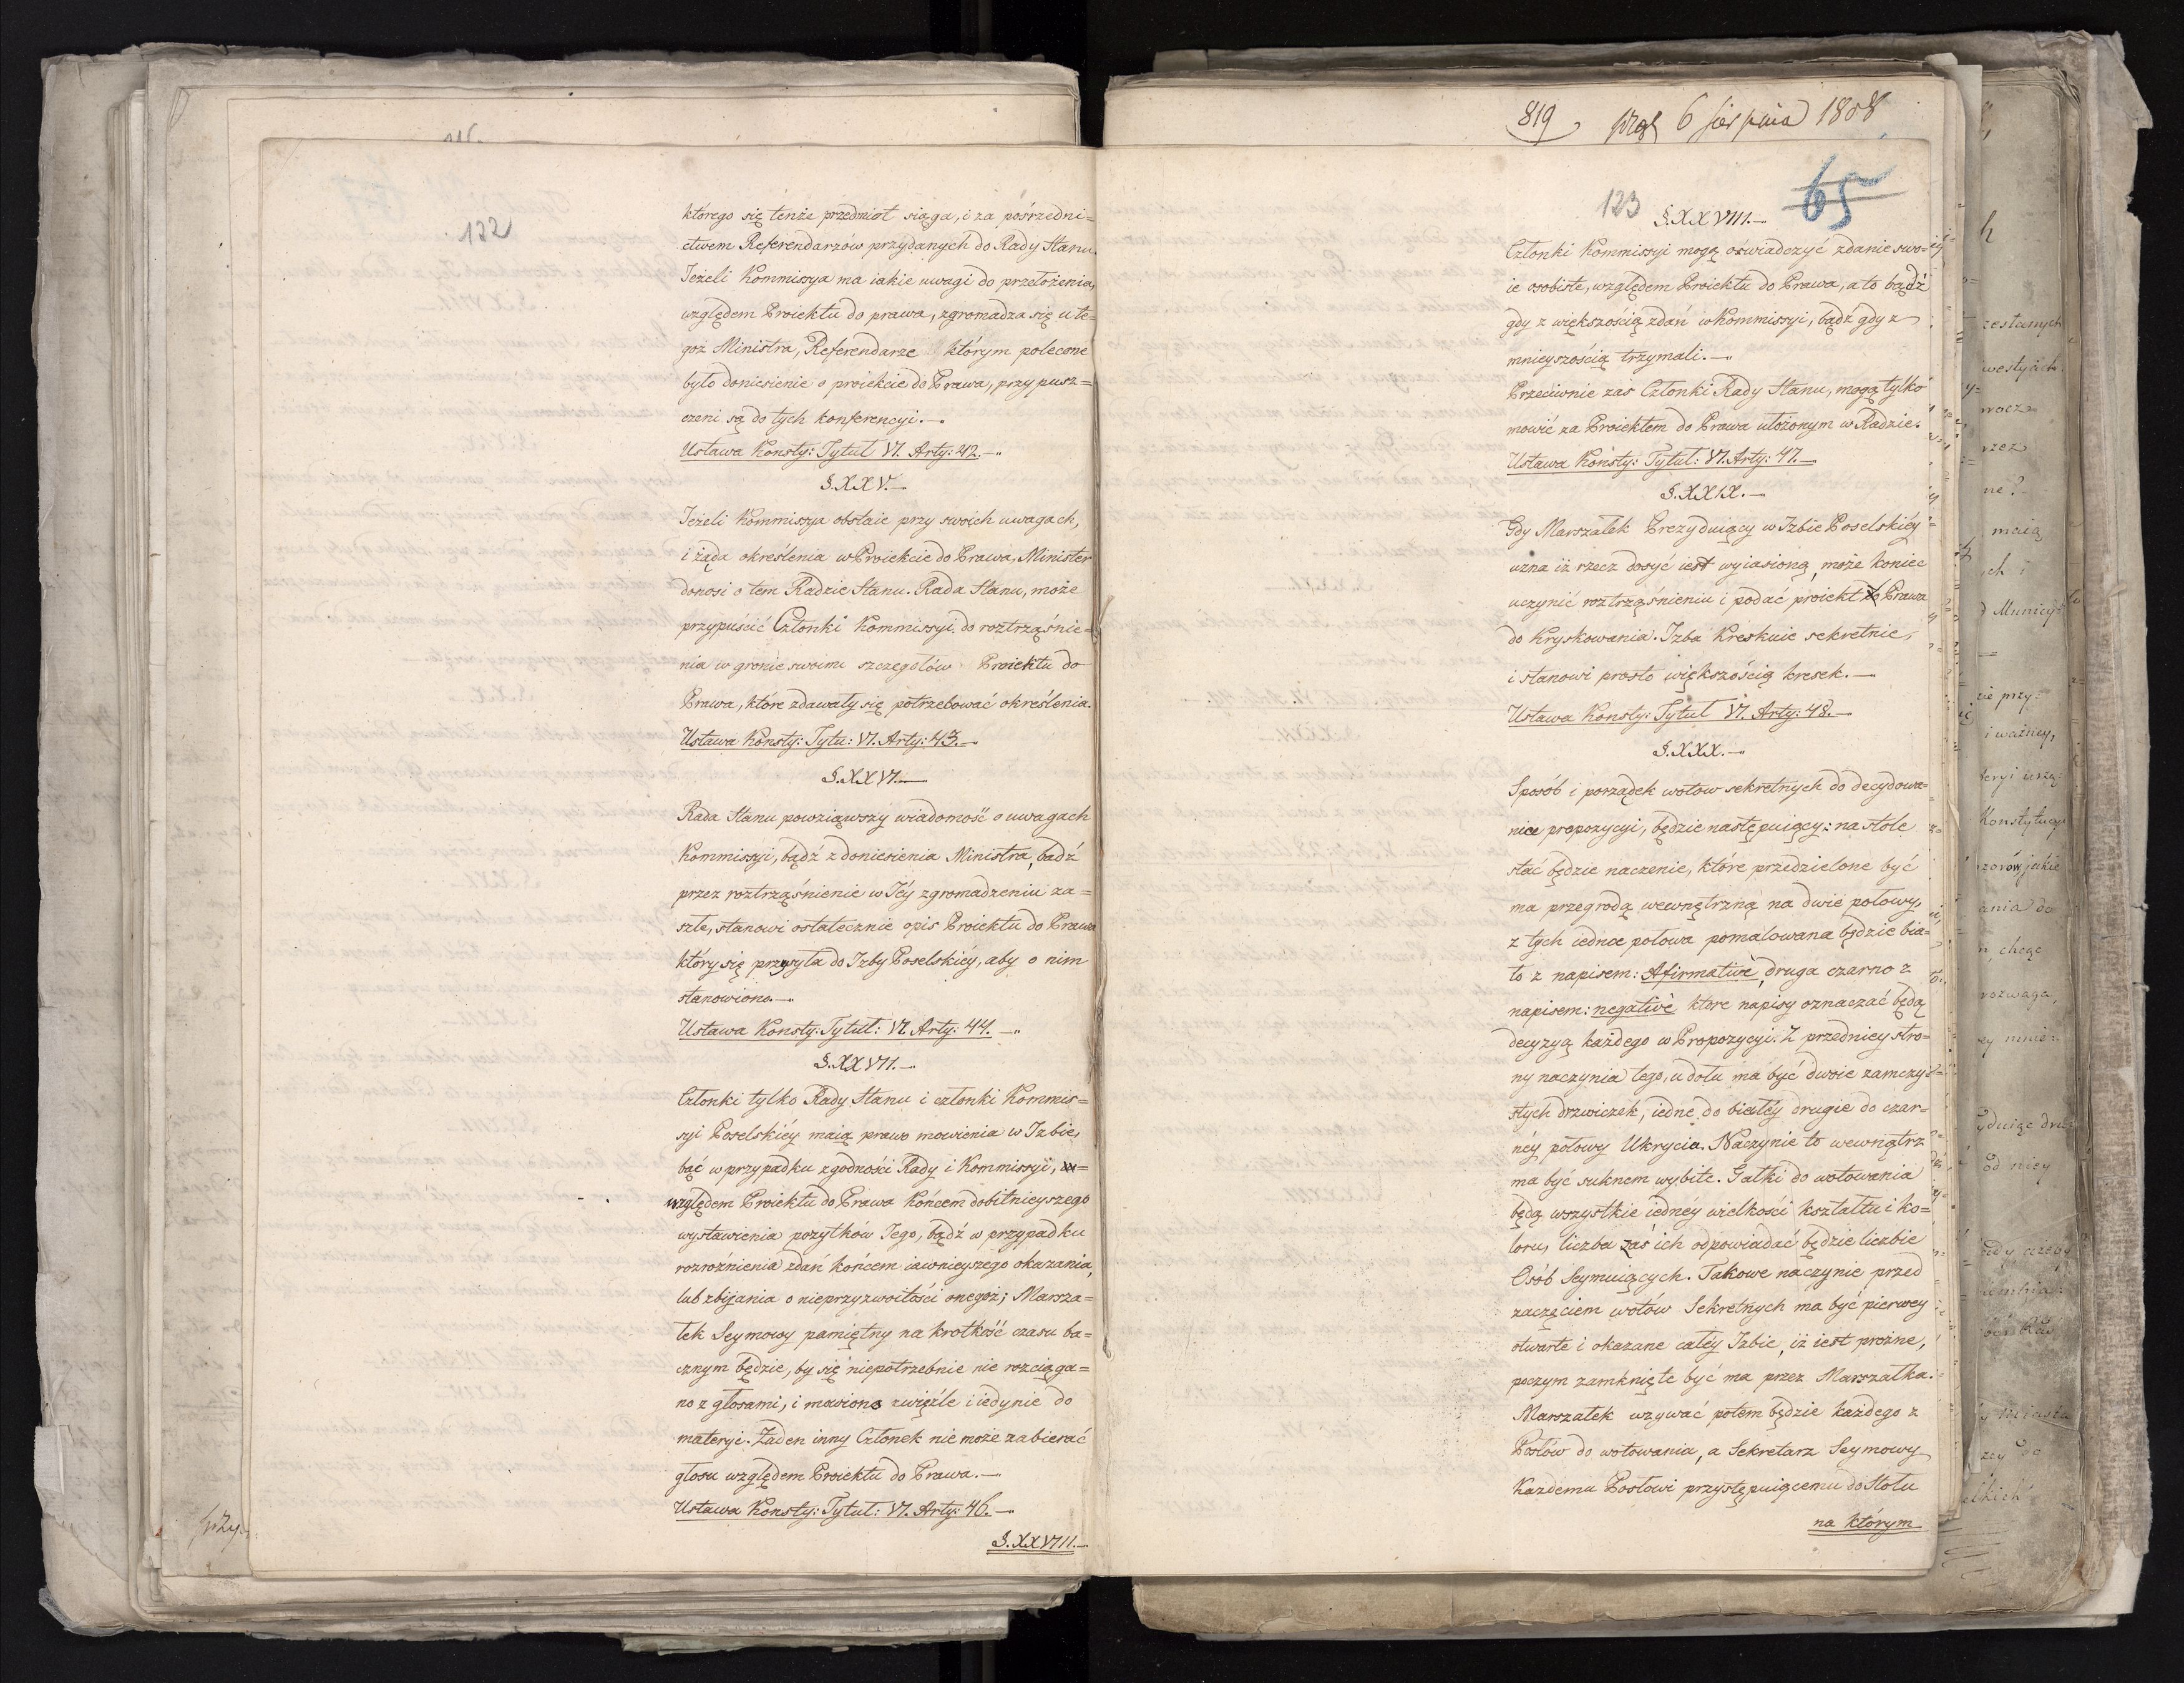 122
którego się tenże przedmiot siąga, i za pośrzedni=
ctwem Referendarzów przydanych do Rady Stanu.
Jeżeli Kommissya ma iakie uwagi do przełożenia,
względem Proiektu do prawa, zgromadza się u te=
goż Ministra, Referendarze którym polecone
było doniesienie o proiekcie do Prawa, przypusz=
czeni są do tych konferencyi.—
Ustawa Konsty: Tytuł VI. Arty: 42.—
§. XXV.—
Jeżeli Kommissya obstaie przy swoich uwagach,
i żąda określenia w Proiekcie do Prawa, Minister
donosi o tem Radzie Stanu. Rada Stanu, może
przypuścić Członki Kommissyi do roztrząśnie=
nia w gronie swoim szczegółów Proiektu do
Prawa, które zdawały się potrzebować określenia.
Ustawa Konsty: Tytu: VI. Arty: 43.—
§. XXVI.—
Rada Stanu powziąwszy wiadomość o uwagach
Kommissyi, bądź z doniesienia Ministra, bądź
przez roztrząśnienie w Jéy zgromadzeniu za=
szłe, stanowi ostatecznie opis Proiektu do Prawa
który się przysyła do Izby Poselskiéy, aby o nim
stanowiono.—
Ustawa Konsty: Tytuł: VI. Arty: 44.—
§. XXVII.—
Członki tylko Rady Stanu i członki Kommis=
syi Poselskiéy maią prawo mowienia w Izbie,
bąć w przypadku zgodności Rady i Kommissyi,
względem Proiektu do Prawa końcem dobitnieyszego
wystawienia pożytków Jego, bądź w przypadku
rozróżnienia zdań końcem iawnieyszego okazania,
lub zbijania o nieprzyzwoitości onegoż; Marsza=
łek Seymowy pamiętny na krotkość czasu ba=
cznym będzie, by się niepotrzebnie nie rozciąga=
no z głosami, i mowiono zwięźle i iedynie do
materyi. Żaden inny Członek nie może zabierać
głosu względem Proiektu do Prawa.—
Ustawa Konsty: Tytuł: VI. Arty: 46.—
§. XXVIII.—
819 6 sierpnia 1808
123
65
§. XXVIII.—
Członki Kommissyi mogą oświadczyć zdanie swo=
ie osobiste, względem Proiektu do Prawa, a to bądź
gdy z większością zdań w Kommissyi, bądź gdy z
mnieyszością trzymali.—
Przeciwnie zas Członki Rady Stanu, mogą tylko
mowić za Proiektem do Prawa ułożonym w Radzie.
Ustawa Konsty: Tytuł: VI. Arty: 47.—
§. XXIX.—
Gdy Marszałek Prezyduiący w Izbie Poselskiéy
uzna iż rzecz dosyć iest wyiasioną, może koniec
uczynić roztrząśnieniu i podać proiekt do Prawa
do Kryskowania. Izba Kreskuie sekretnie,
i stanowi prosto większością kresek.—
Ustawa Konsty: Tytuł VI. Arty: 48.—
§. XXX.—
Sposób i porządek wotow sekretnych do decydowa=
nia propozycyi, będzie następuiący: na stole
stać będzie naczenie, które przedzielone być
ma przegrodą wewnętrzną na dwie połowy,
z tych iedna połowa pomalowana będzie bia=
ło z napisem: Afirmativè, druga czarno z
napisem: negativè ktore napisy oznaczać będą
decyzyą każdego w Propozycyi. Z przedniey stro=
ny naczynia tego, u dołu ma być dwoie zamczy=
stych drzwiczek, iedne do białéy drugie do czar=
néy połowy Ukrycia. Naczynie to wewnątrz
ma być suknem wybite. Gałki do wotowania
będą wszystkie iednéy wielkości kształtu i ko=
loru, liczba zaś ich odpowiadać będzie liczbie
Osób Seymuiących. Takowe naczynie przed
zaczęciem wotów Sekretnych ma być pierwey
otwarte i okazane całéy Izbie, iż iest prożne,
poczym zamknięte być ma przez Marszałka.
Marszałek wzywać potem będzie każdego z
Posłów do wotowania, a Sekretarz Seymowy
Każdemu Posłowi przystępuiącemu do Stołu
na którym